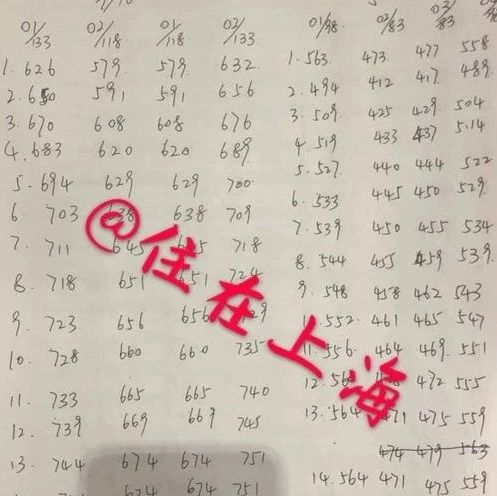 01/133 02/118 01/118 02/133 01/98 02/83 03/83
1. 626 579 579 632 1. 563 473 477 558
2. 650 591 591 656 2. 494 412 417 489
3. 670 608 608 676 3. 509 425 429 504
4. 683 620 620 689 4. 519 433 437 514
5. 694 629 629 700 5. 527 440 444 522
6. 703 638 638 709 6. 533 445 450 529
7. 711 645 718 7. 539 450 455 534
8. 718 651 651 724 8. 544 455 459 539
9. 723 656 656 9. 548 458 462 543
10. 728 660 660 735 552 461 465 547
11. 733 665 665 740 11. 556 464 469 551
12. 739 669 669 745 12. 472 555
13. 744 674 674 751 13. 564 471 475 559
474 479 563
674 674 751 14. 564 471 475 559
@住在上海